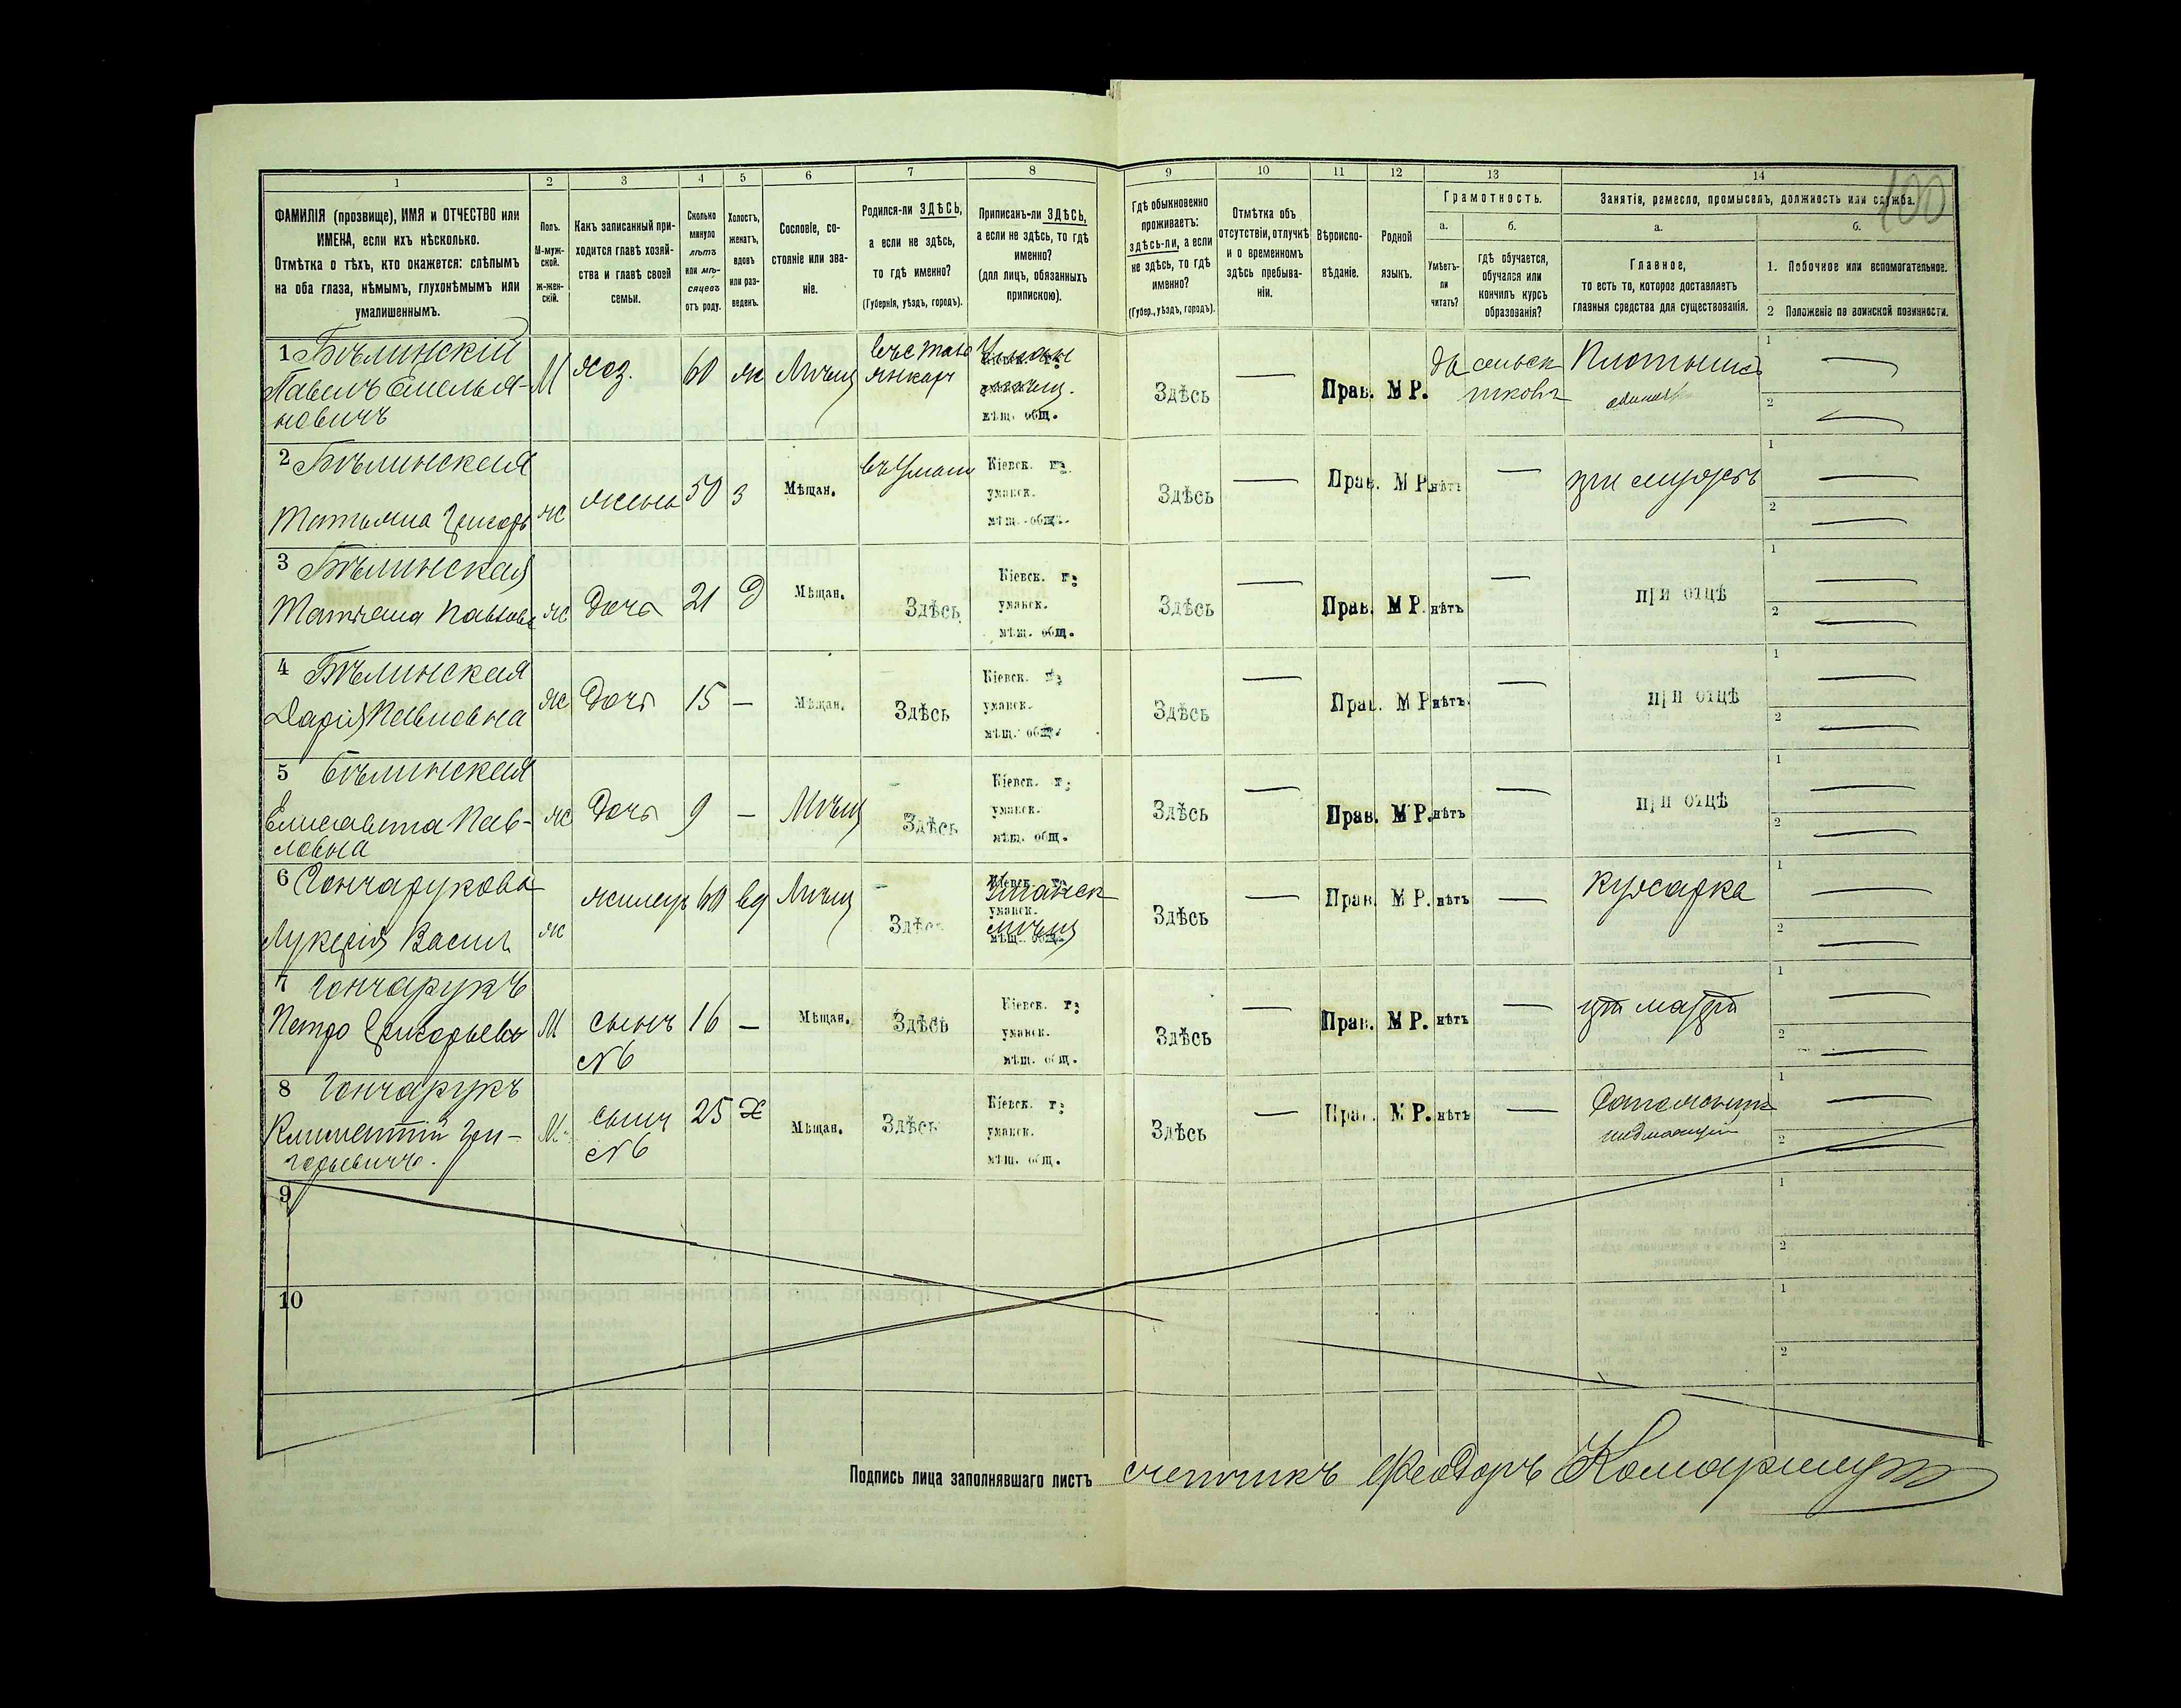 100
1 2 3 4 5 6 7 8 9 10 11 12 13 14
ФАМИЛІЯ (прозвище), ИМЯ и ОТЧЕСТВО или
ИМЕНА, если ихъ нѣсколько.
Отмѣтка о тѣхъ, кто окажется: слѣпымъ
на оба глаза, нѣмымъ, глухонѣмымъ или
умалишеннымъ.
Полъ.
М-муж-
ской.
Ж-жен-
скій.
Какъ записанный при-
ходится главѣ хозяй-
ства и главѣ своей
семьи.
Сколько
минуло
лѣтъ
или мѣ-
сяцевъ
отъ роду.
Холостъ,
женатъ,
вдовъ
или раз-
веденъ.
Сословіе, со-
стояніе или зва-
ніе.
Родился-ли ЗДѢСЬ,
а если не здѣсь,
то гдѣ именно?
(Губернія, уѣздъ, городъ).
Приписанъ-ли ЗДѢСЬ,
а если не здѣсь, то гдѣ
именно?
(для лицъ, обязанныхъ
припискою).
Гдѣ обыкновенно
проживаетъ:
здѣсь-ли, а если
не здѣсь, то гдѣ
именно?
(Губер., уѣздъ, городъ).
Отмѣтка объ
отсутствіи, отлучкѣ
и о временномъ
здѣсь пребыва-
ніи.
Вѣроиспо-
вѣданіе.
Родной
языкъ.
Грамотность.
а.
Умѣетъ-
ли
читать?
б.
гдѣ обучается,
обучался или
кончилъ курсъ
образованія?
Занятія, ремесло, промыселъ, должность или служба.
а.
Главное,
то есть то, которое доставляетъ
главныя средства для существованія.
б.
1. Побочное или вспомогательное.
2 Положеніе по воинской повинности.
1 Бѣлинскій
Павелъ Емелья-
новичъ
М
хоз.
60
ж
Мѣщ
мѣщ. общ.
Здѣсь
—
Прав.
М Р.
да
сельск
школѣ
Плотникъ
1 —
2 —
2 Бѣлинская
Татьяна Григорь
ж
жена
50
з
Мѣщан.
въ Умани
Кіевск. г.
уманск.
мѣщ. общ.
Здѣсь
—
Прав.
М Р.
нѣтъ
—
при мужѣ
1 —
2 —
3 Бѣлинская
Татьяна Павловн
ж
дочь
21
д
Мѣщан.
Здѣсь
Кіевск. г.
уманск.
мѣщ. общ.
Здѣсь
—
Прав.
М Р.
нѣтъ
—
при отцѣ
1 —
2 —
4 Бѣлинская
Дарія Павловна
ж
дочь
15
—
Мѣщан.
Здѣсь
Кіевск. г.
уманск.
мѣщ. общ.
Здѣсь
—
Прав.
М Р
нѣтъ.
—
при отцѣ
1 —
2 —
5 Бѣлинская
Елисавета Пав-
ловна
ж
дочь
9
—
Мѣщ
Здѣсь
Кіевск. г.
уманск.
мѣщ. общ.
Здѣсь
—
Прав.
М Р.
нѣтъ
—
при отцѣ
1 —
2 —
6 Гончарукова
Лукерія Васил
ж
жилец
60
вд
Мѣщ
Здѣсь
Кіевск. г.
Уманск
уманск.
мѣщ
мѣщ. общ.
Здѣсь
—
Прав.
М Р.
нѣтъ
—
кухарка
1 —
2 —
7 Гончарукъ
Петро Григорьевъ
М
сынъ
№6
16
—
Мѣщан.
Здѣсь
Кіевск. г.
уманск.
мѣщ. общ.
Здѣсь
—
Прав.
М Р.
нѣтъ
—
при матери
1 —
2 —
8 Гончарукъ
Климентій Гри-
горьевичъ.
М.
сынъ
№6
25
х
Мѣщан.
Здѣсь
Кіевск. г.
уманск.
мѣщ. общ.
Здѣсь
—
Прав.
М Р.
нѣтъ
—
Сапожникъ
1 —
2 —
9
1
2
10
1
2
Подпись лица заполнявшаго листъ счетчикъ Феодоръ